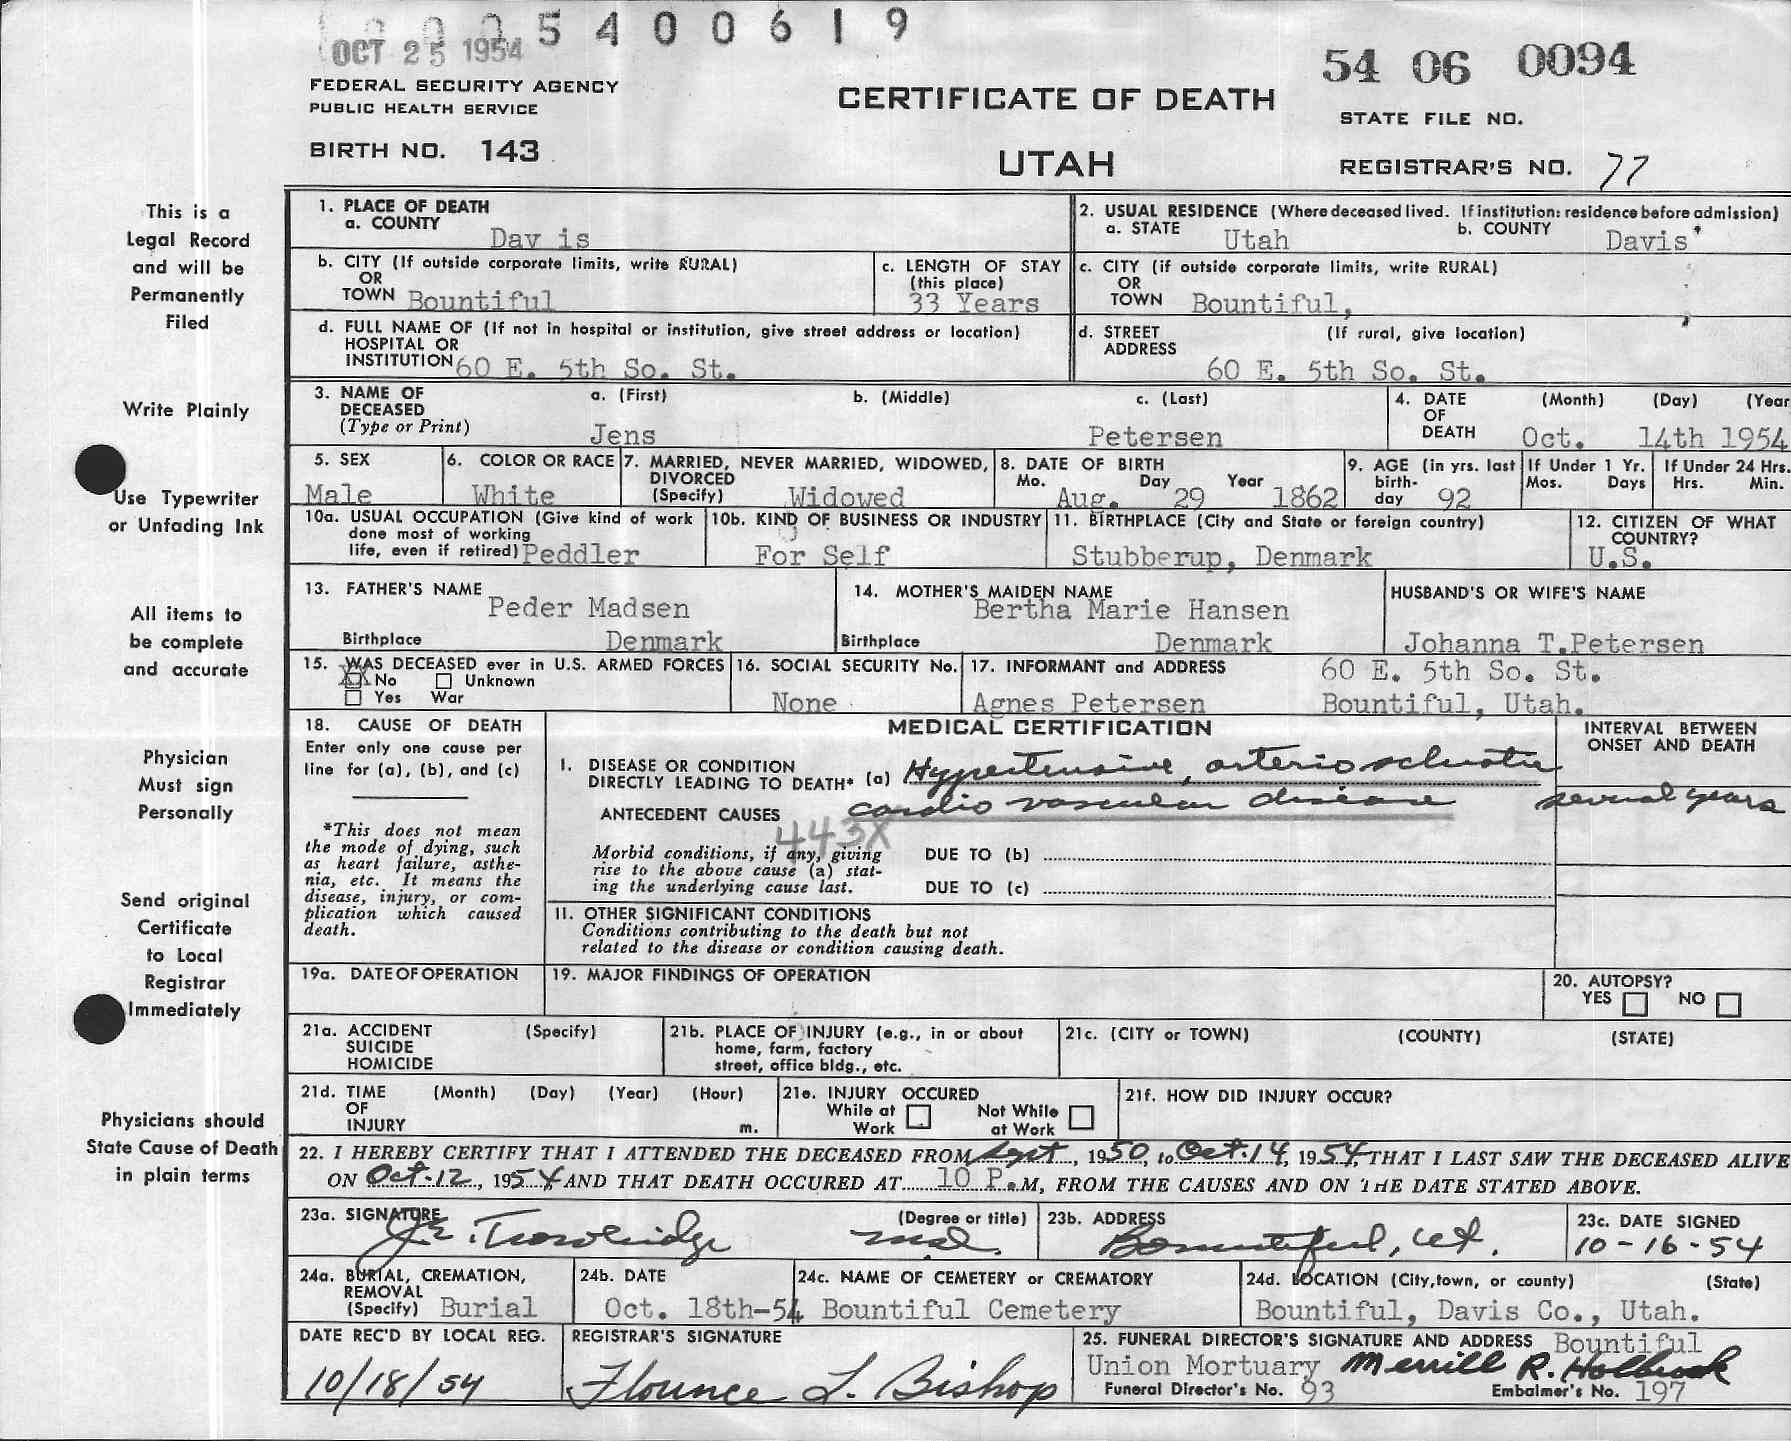 OCT 25 1954
5400619
54 06 0094
FEDERAL SECURITY AGENCY
PUBLIC HEALTH SERVICE
CERTIFICATE OF DEATH
STATE FILE NO.
BIRTH NO. 143
UTAH
REGISTRAR'S NO. 77
This is a
Legal Record
and will be
Permanently
Filed
Write Plainly
Use Typewriter
or Unfading Ink
All items to
be complete
and accurate
Physician
Must sign
Personally
Send original
Certificate
to Local
Registrar
Immediately
Physicians should
State Cause of Death
in plain terms
1. PLACE OF DEATH
a. COUNTY Dav is
2. USUAL RESIDENCE (Where deceased lived. If institution: residence before admission)
a. STATE Utah b. COUNTY Davis
b. CITY (If outside corporate limits, write RURAL)
OR
TOWN Bountiful
c. LENGTH OF STAY
(this place)
33 Years
c. CITY (if outside corporate limits, write RURAL)
OR
TOWN Bountiful,
d. FULL NAME OF (If not in hospital or institution, give street address or location)
HOSPITAL OR
INSTITUTION 60 E. 5th So. St.
d. STREET (If rural, give location)
ADDRESS
60 E. 5th So. St.
3. NAME OF a. (First) b. (Middle) c. (Last)
DECEASED
(Type or Print) Jens Petersen
4. DATE (Month) (Day) (Year
OF
DEATH Oct. 14th 1954
5. SEX
Male
6. COLOR OR RACE
White
7. MARRIED, NEVER MARRIED, WIDOWED,
DIVORCED
(Specify) Widowed
8. DATE OF BIRTH
Mo. Day Year
Aug. 29 1862
9. AGE (in yrs. last
birth-
day 92
If Under 1 Yr.
Mos. Days
If Under 24 Hrs.
Hrs. Min.
10a. USUAL OCCUPATION (Give kind of work
done most of working
life, even if retired) Peddler
10b. KIND OF BUSINESS OR INDUSTRY
For Self
11. BIRTHPLACE (City and State or foreign country)
Stubberup, Denmark
12. CITIZEN OF WHAT
COUNTRY?
U.S.
13. FATHER'S NAME
Peder Madsen
Birthplace Denmark
14. MOTHER'S MAIDEN NAME
Bertha Marie Hansen
Birthplace Denmark
HUSBAND'S OR WIFE'S NAME
Johanna T.Petersen
15. WAS DECEASED ever in U.S. ARMED FORCES
XX No Unknown
Yes War
16. SOCIAL SECURITY No.
None
17. INFORMANT and ADDRESS 60 E. 5th So. St.
Agnes Petersen Bountiful, Utah.
18. CAUSE OF DEATH
Enter only one cause per
line for (a), (b), and (c)
*This does not mean
the mode of dying, such
as heart failure, asthe-
nia, etc. It means the
disease, injury, or com-
plication which caused
death.
MEDICAL CERTIFICATION
INTERVAL BETWEEN
ONSET AND DEATH
I. DISEASE OR CONDITION
DIRECTLY LEADING TO DEATH* (a) Hypertensive, arteriosclerotic
ANTECEDENT CAUSES cardio vascular disease several years
443X
Morbid conditions, if any, giving
rise to the above cause (a) stat-
ing the underlying cause last.
DUE TO (b)
DUE TO (c)
II. OTHER SIGNIFICANT CONDITIONS
Conditions contributing to the death but not
related to the disease or condition causing death.
19a. DATE OF OPERATION
19. MAJOR FINDINGS OF OPERATION
20. AUTOPSY?
YES NO
21a. ACCIDENT (Specify)
SUICIDE
HOMICIDE
21b. PLACE OF INJURY (e.g., in or about
home, farm, factory
street, office bldg., etc.
21c. (CITY or TOWN) (COUNTY) (STATE)
21d. TIME (Month) (Day) (Year) (Hour)
OF
INJURY m.
21e. INJURY OCCURED
While at Work Not While at Work
21f. HOW DID INJURY OCCUR?
22. I HEREBY CERTIFY THAT I ATTENDED THE DECEASED FROM Sept, 1950, to Oct. 14, 1954, THAT I LAST SAW THE DECEASED ALIVE
ON Oct. 12, 1954 AND THAT DEATH OCCURED AT 10 P.M, FROM THE CAUSES AND ON THE DATE STATED ABOVE.
23a. SIGNATURE (Degree or title)
J.E. Trowbridge M.D.
23b. ADDRESS
Bountiful, Ut.
23c. DATE SIGNED
10-16-54
24a. BURIAL, CREMATION,
REMOVAL
(Specify) Burial
24b. DATE
Oct. 18th-54
24c. NAME OF CEMETERY or CREMATORY
Bountiful Cemetery
24d. LOCATION (City, town, or county) (State)
Bountiful, Davis Co., Utah.
DATE REC'D BY LOCAL REG.
10/18/54
REGISTRAR'S SIGNATURE
Flounce L. Bishop
25. FUNERAL DIRECTOR'S SIGNATURE AND ADDRESS Bountiful
Union Mortuary Merrill R. Holbrook
Funeral Director's No. 93 Embalmer's No. 197